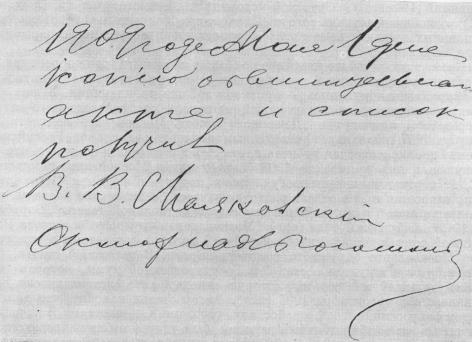 1909 года Мая 1 дня
копию обвинительнаго
акта и список
получил
В. В. Маяковский